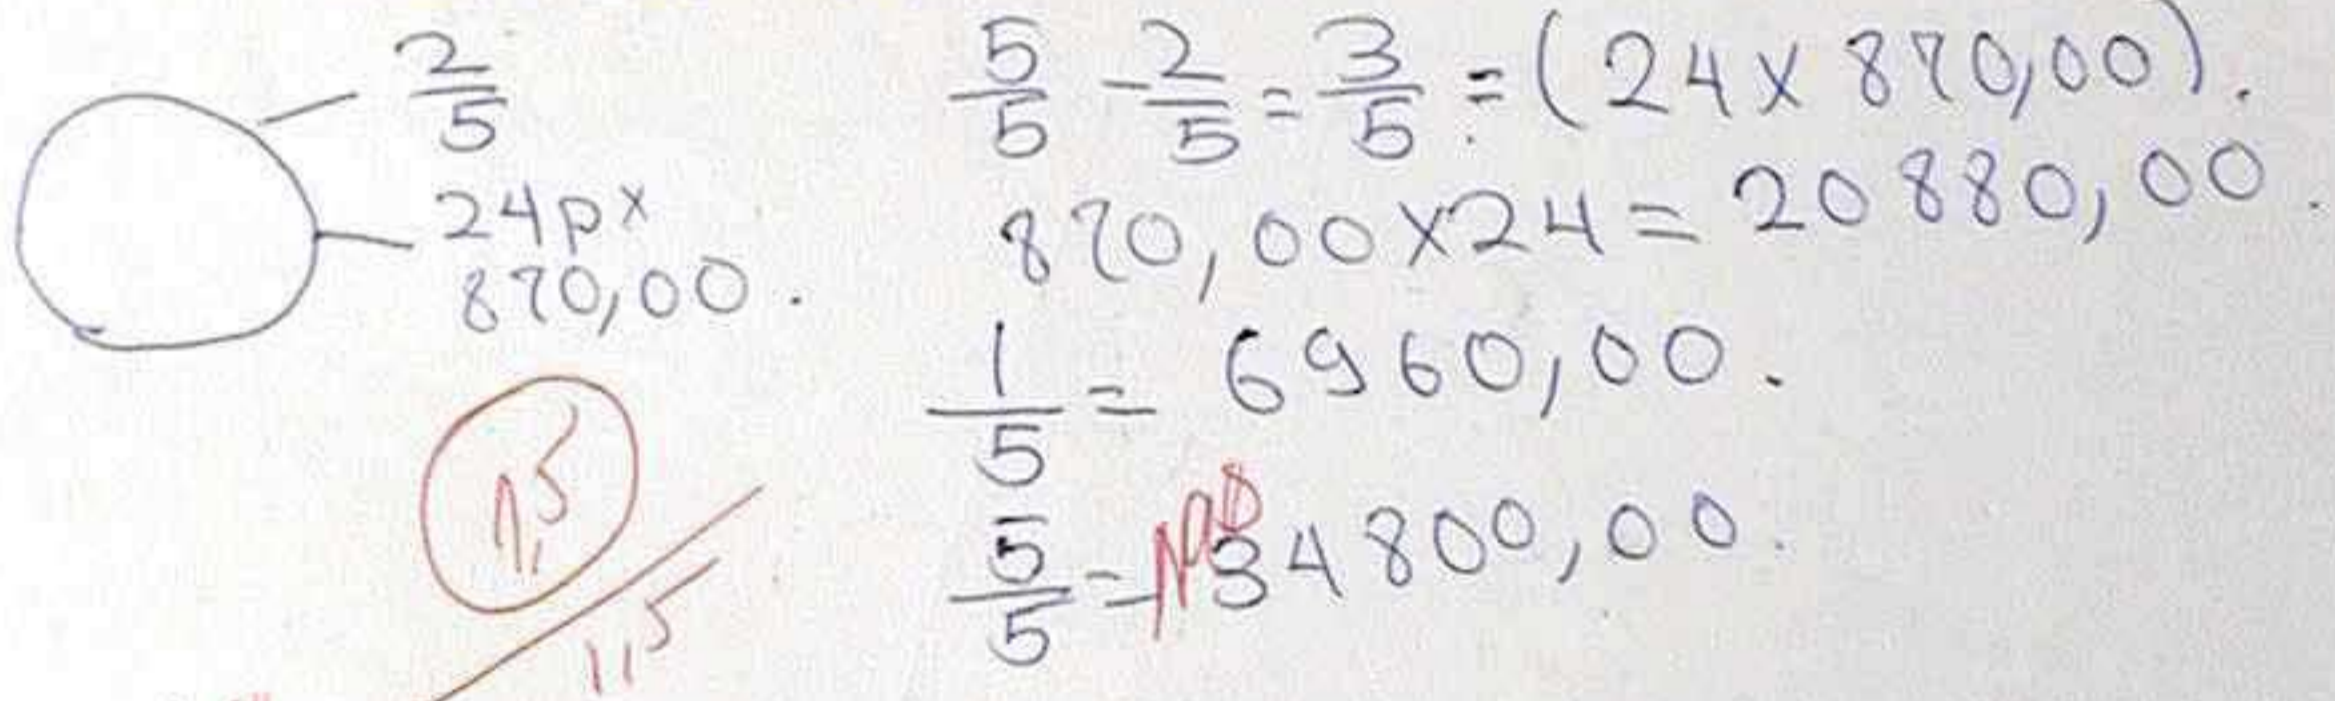 2/5
24p x
870,00.
5/5 - 2/5 = 3/5 = (24 x 870,00).
870,00 x 24 = 20880,00.
1/5 = 6960,00.
5/5 = 34800,00.
1,5
1,5